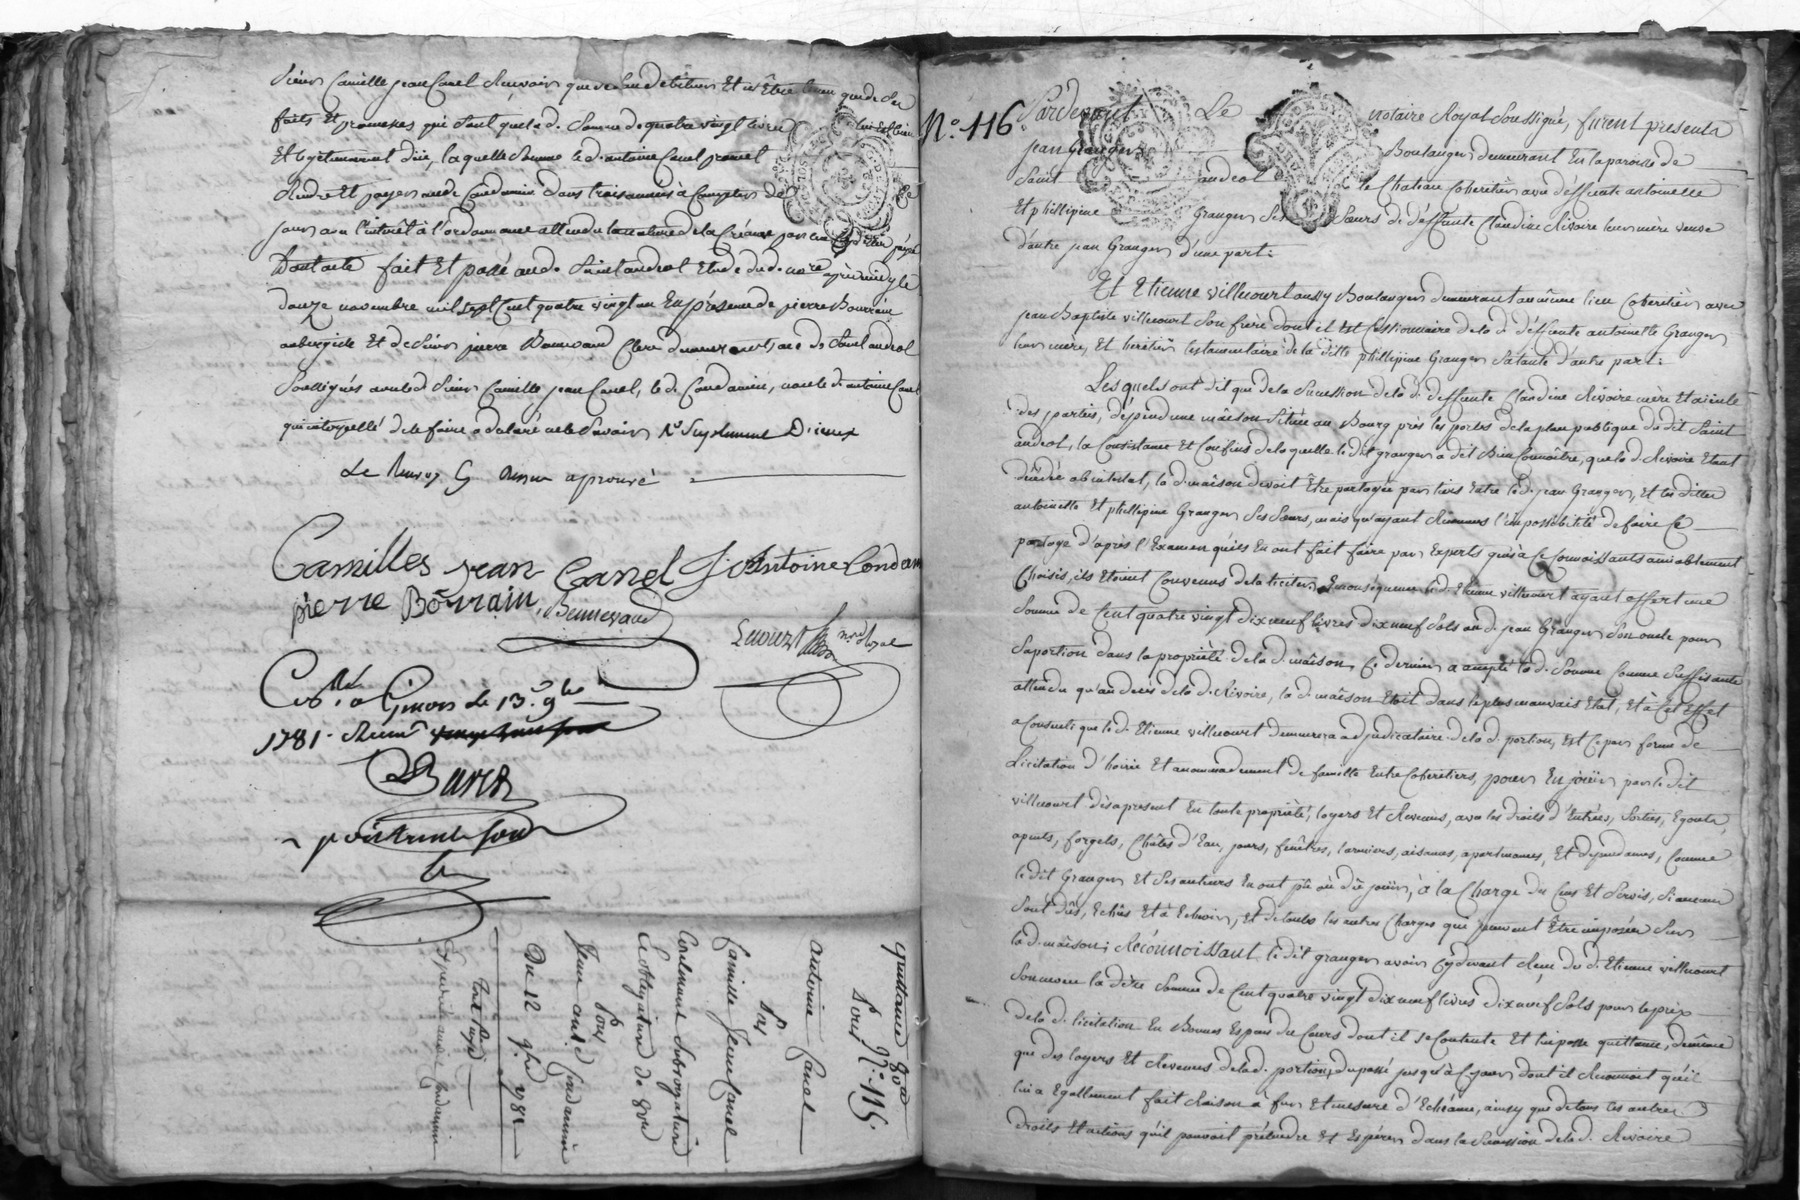 Sieur Camille Jean Canel
faits Et promesses qui sont que lad. Somme de quatre vingt livres
Et legitimement düe, laquelle Somme led. antoine Canel promet
Rendre Et payer aud. Condamin dans trois années à Compter de Ce
jour avec l'intérêt à l'ordonnance attendu la nature de la Créance
Dont acte fait Et passé aud. Saint andéol Etude dud. nore après midy le
douze novembre mil sept Cent quatre vingt un En présence de pierre Bourrin
aubergiste Et de Sieur pierre Bonnevand Clerc demeurant aud. Saint andeol
Soussignés avec led. Sieur Camille jean Canel, le d. Condamin, non le d. antoine Canel
qui interpellé de le faire a déclaré ne le Savoir
aprouvé
Camilles jean Canel J Antoine Condam
pierre Bõrrain,
nre Royal
Con.lé a Givors le 13.e 9bre
1781. Reçu
quittance
pour N.o 115.
antoine Canel
par
Camille Jean Canel
Contenant Subrogation
pour
Jean ant.e Condamin
Du 12 9bre 1781
N.o 116.
Pardevant Le notaire Royal Soussigné, furent presents
jean Granger Boulanger demeurant En la paroisse de
Saint andeol le Chateau Coheritier avec déffunte antoinette
Et phillipine Granger Ses Sœurs de déffunte Claudine Rivoire leur mère veuve
d'autre jean Granger d'une part:
Et Etienne villecourt aussy Boulanger demeurant au même lieu Coheritier avec
jean Baptiste villecourt Son frère dont il Est Cessionnaire de la d. déffunte antoinette Granger
leur mère, Et heritier testamentaire de la ditte phillipine Granger Sa tante d'autre part:
Les quels ont dit que de la Succession de la d. deffunte Claudine Rivoire mère Et aieule
des parties, dépend une maison Située au Bourg près les portes de la place publique du dit Saint
andeol, la Consistance Et Confins de laquelle le dit granger a dit Bien Connoître, que la d. Rivoire Etant
décédé abintestat, la d. maison devoit Être partagée par tiers Entre led. jean Granger, Et les dittes
antoinette Et phillipine Granger Ses Sœurs, mais qu'ayant Reconnus l'impossibilité de faire Ce
partage d'après l'Examen qu'ils En ont fait faire par Experts qu'à Ce Connoissants amiablement
Choisis, ils Etoient Convenus de la liciter; En Consequence led. Etienne villecourt ayant offert une
Somme de Cent quatre vingt dix neuf livres dix neuf Sols au d. jean Granger Son oncle pour
Sa portion dans la propriété de la d. maison, Ce dernier a accepté la d. Somme Comme Suffisante
attendu qu'au decès de la d. Rivoire, la d. maison Etoit dans le plus mauvais Etat, Et à Cet Effet
a Consenti que le d. Etienne villecourt demeurera adjudicataire de la d. portion, Et Ce par forme de
Licitation d'hoirie Et accommodement de famille Entre Coheritiers, pour En jouir par le dit
villecourt dès apresent En toute propriété, loyers Et Revenus, avec les droits d'Entrées, Sorties, Egouts,
apents, forgets, Chûtes d'Eau, jours, fenêtres, larmiers, aisances, apartenances, Et dépendances, Comme
le dit Granger Et Ses auteurs En ont pû ou dû jouir, à la Charge du Cens Et Servis, Si aucuns
Sont dûs, Echûs Et à Echeoir, Et de toutes les autres Charges qui peuvent Être imposées Sur
la d. maison; Reconnoissant le dit granger avoir Cydevant Reçu du d. Etienne villecourt
Son neveu la ditte Somme de Cent quatre vingt dix neuf livres dix neuf Sols pour le prix
de la d. licitation En Bonnes Especes du Cours dont il Se Contente Et lui passe quittance, de même
que des loyers Et Revenus de lad. portion, du passé jusqu'à Ce jour dont il Reconnoit qu'il
lui a Egallement fait Raison à fur Et mesure d'Echéance, ainsy que de tous les autres
droits Et actions qu'il pouvoit prétendre Et Espérer dans la Succession de la d. Rivoire